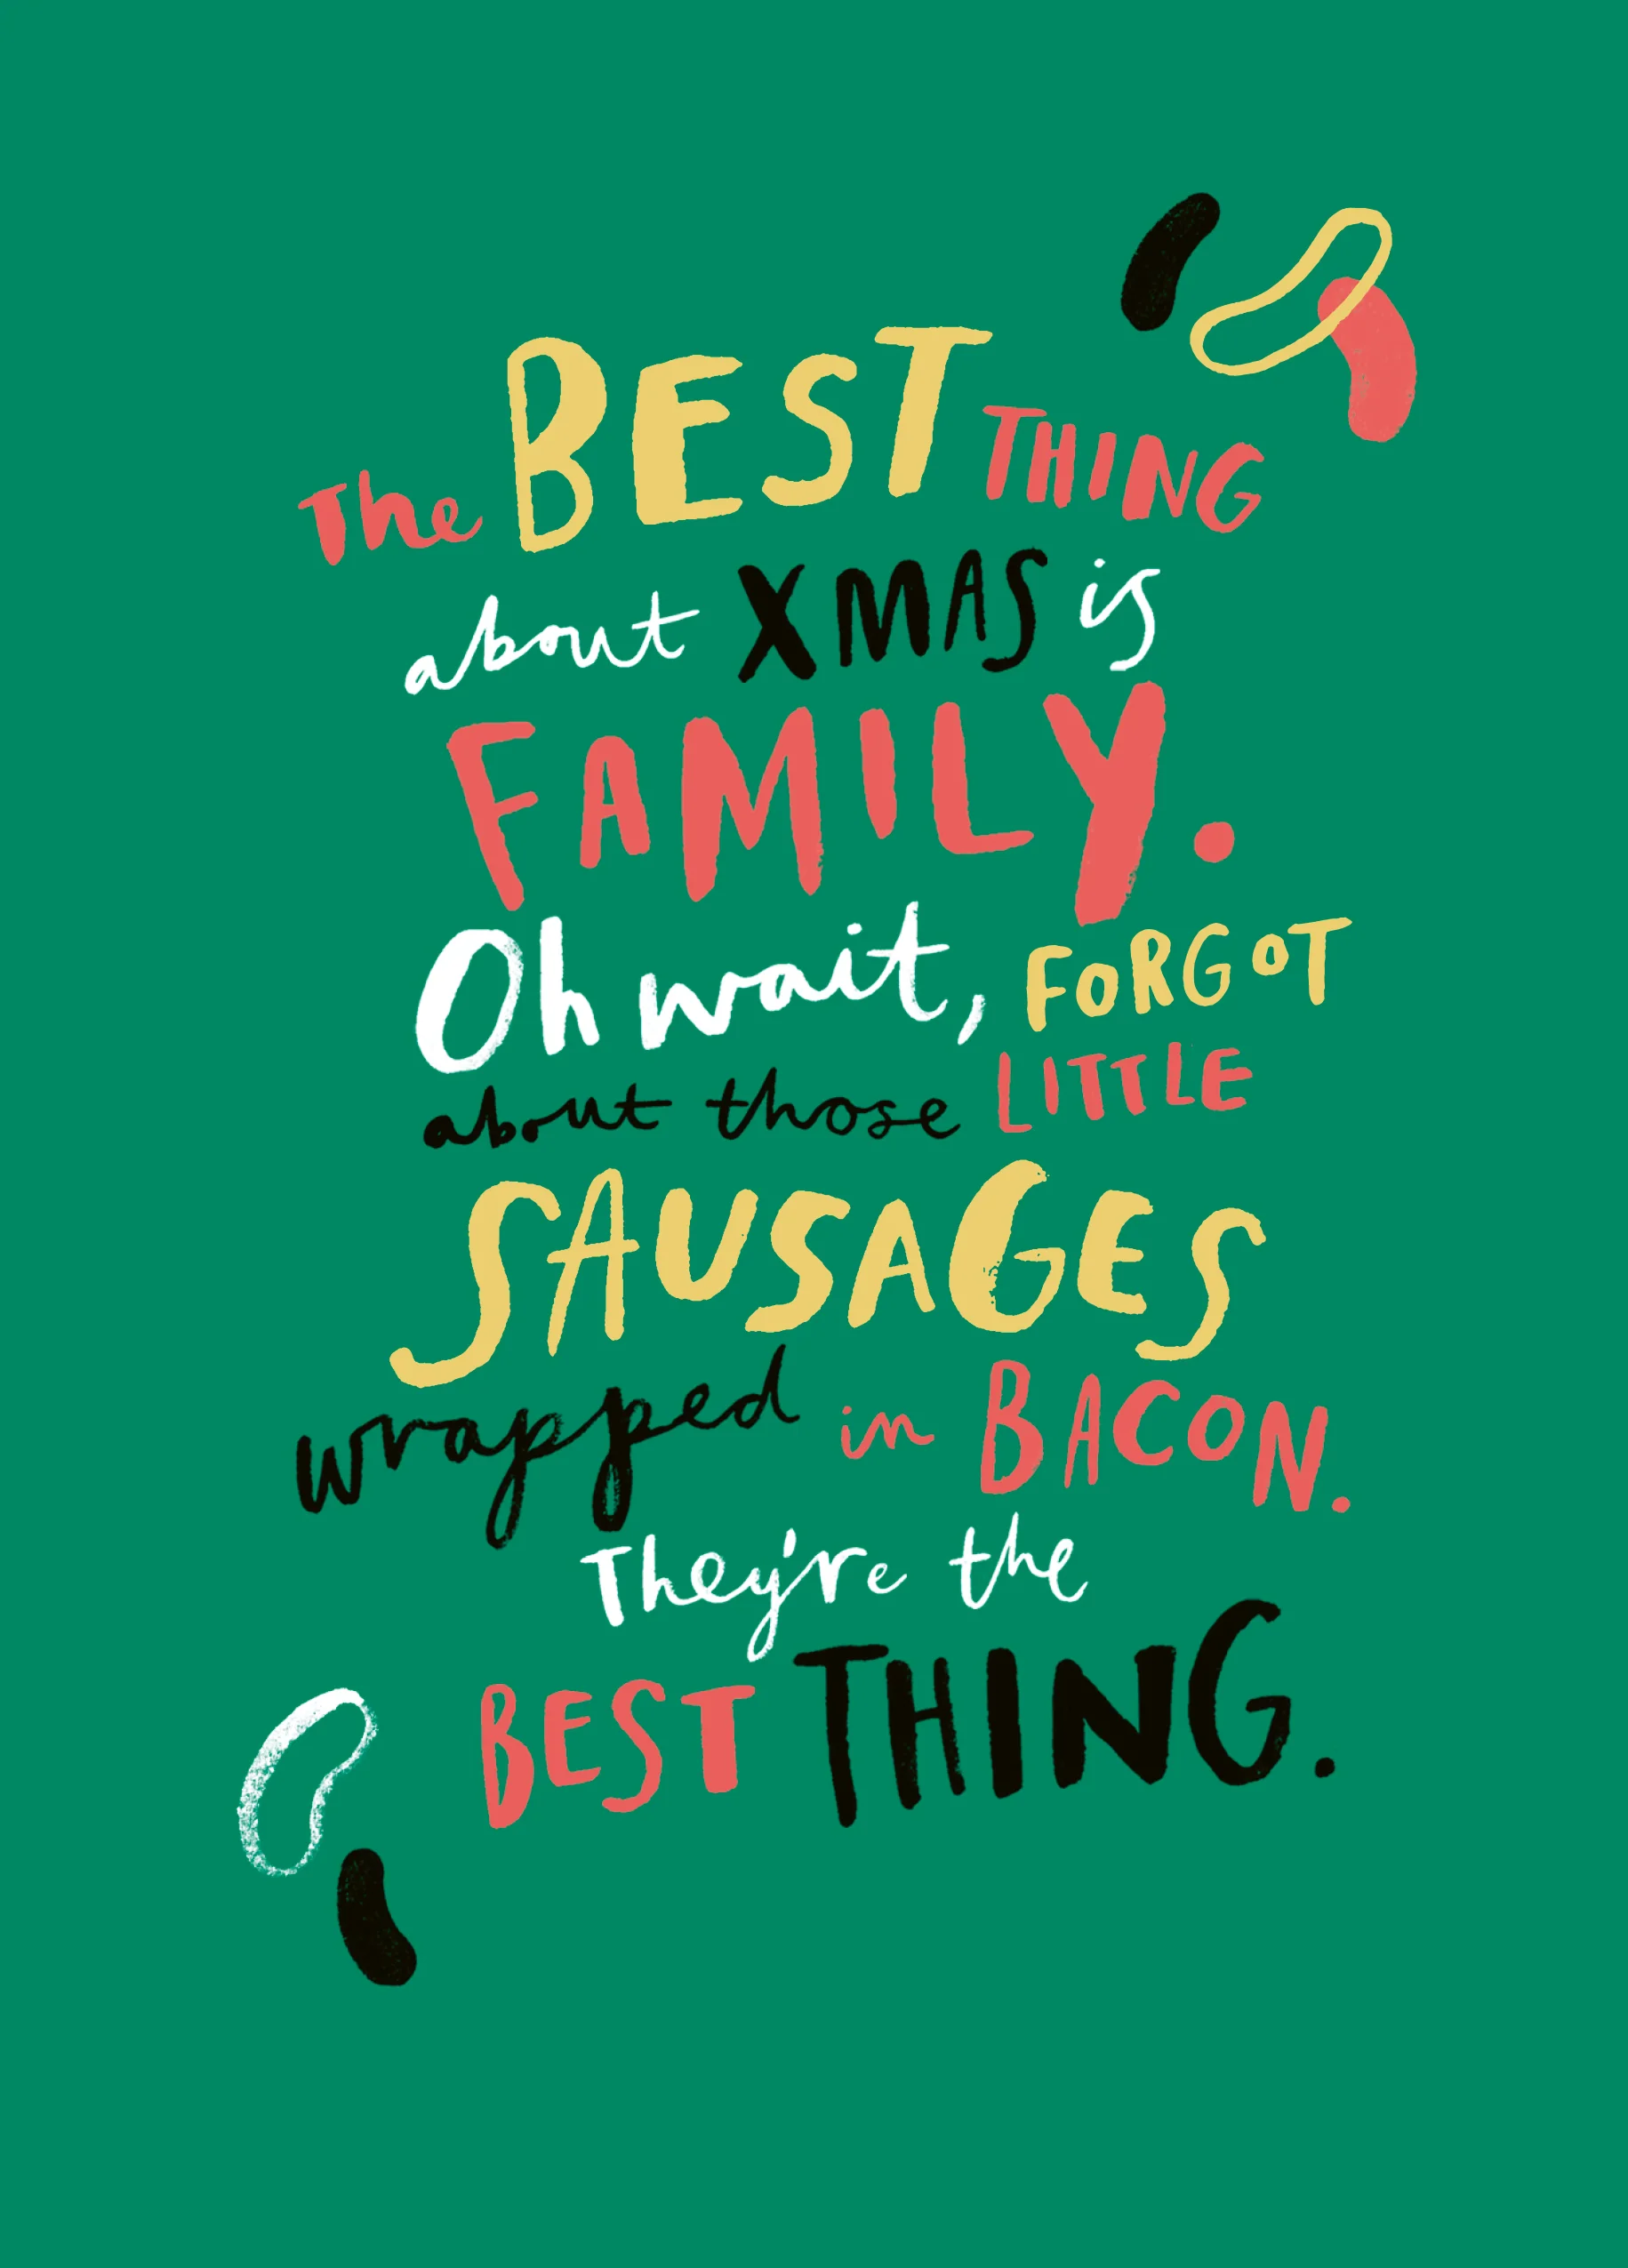 The BEST THING
about XMAS is
FAMILY.
Oh wait, FORGOT
about those LITTLE
SAUSAGES
wrapped in BACON.
They're the
BEST THING.